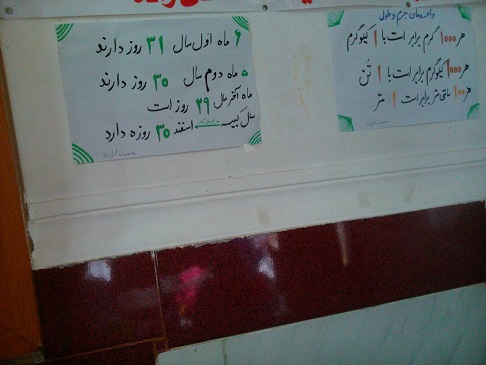 واحدهای جرم و طول
هر ۱۰۰۰ گرم برابر است با ۱ کیلوگرم
هر ۱۰۰۰ کیلوگرم برابر است با ۱ تُن
هر ۱۰۰ سانتی متر برابر است ۱ متر
۶ ماه اول سال ۳۱ روز دارند
۵ ماه دوم سال ۳۰ روز دارند
ماه آخر سال ۲۹ روز است
سال کبیسه اسفند ۳۰ روزه دارد